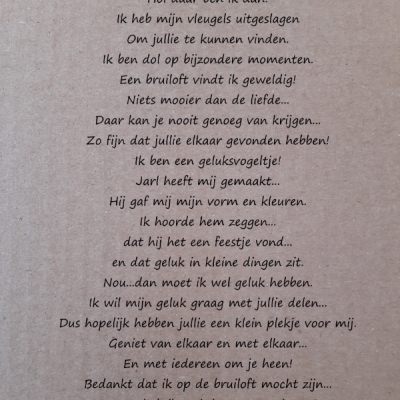 Hoi daar ben ik dan!
Ik heb mijn vleugels uitgeslagen
Om jullie te kunnen vinden.
Ik ben dol op bijzondere momenten.
Een bruiloft vindt ik geweldig!
Niets mooier dan de liefde...
Daar kan je nooit genoeg van krijgen...
Zo fijn dat jullie elkaar gevonden hebben!
Ik ben een geluksvogeltje!
Jarl heeft mij gemaakt...
Hij gaf mij mijn vorm en kleuren.
Ik hoorde hem zeggen...
dat hij het een feestje vond...
en dat geluk in kleine dingen zit.
Nou...dan moet ik wel geluk hebben.
Ik wil mijn geluk graag met jullie delen...
Dus hopelijk hebben jullie een klein plekje voor mij.
Geniet van elkaar en met elkaar...
En met iedereen om je heen!
Bedankt dat ik op de bruiloft mocht zijn...